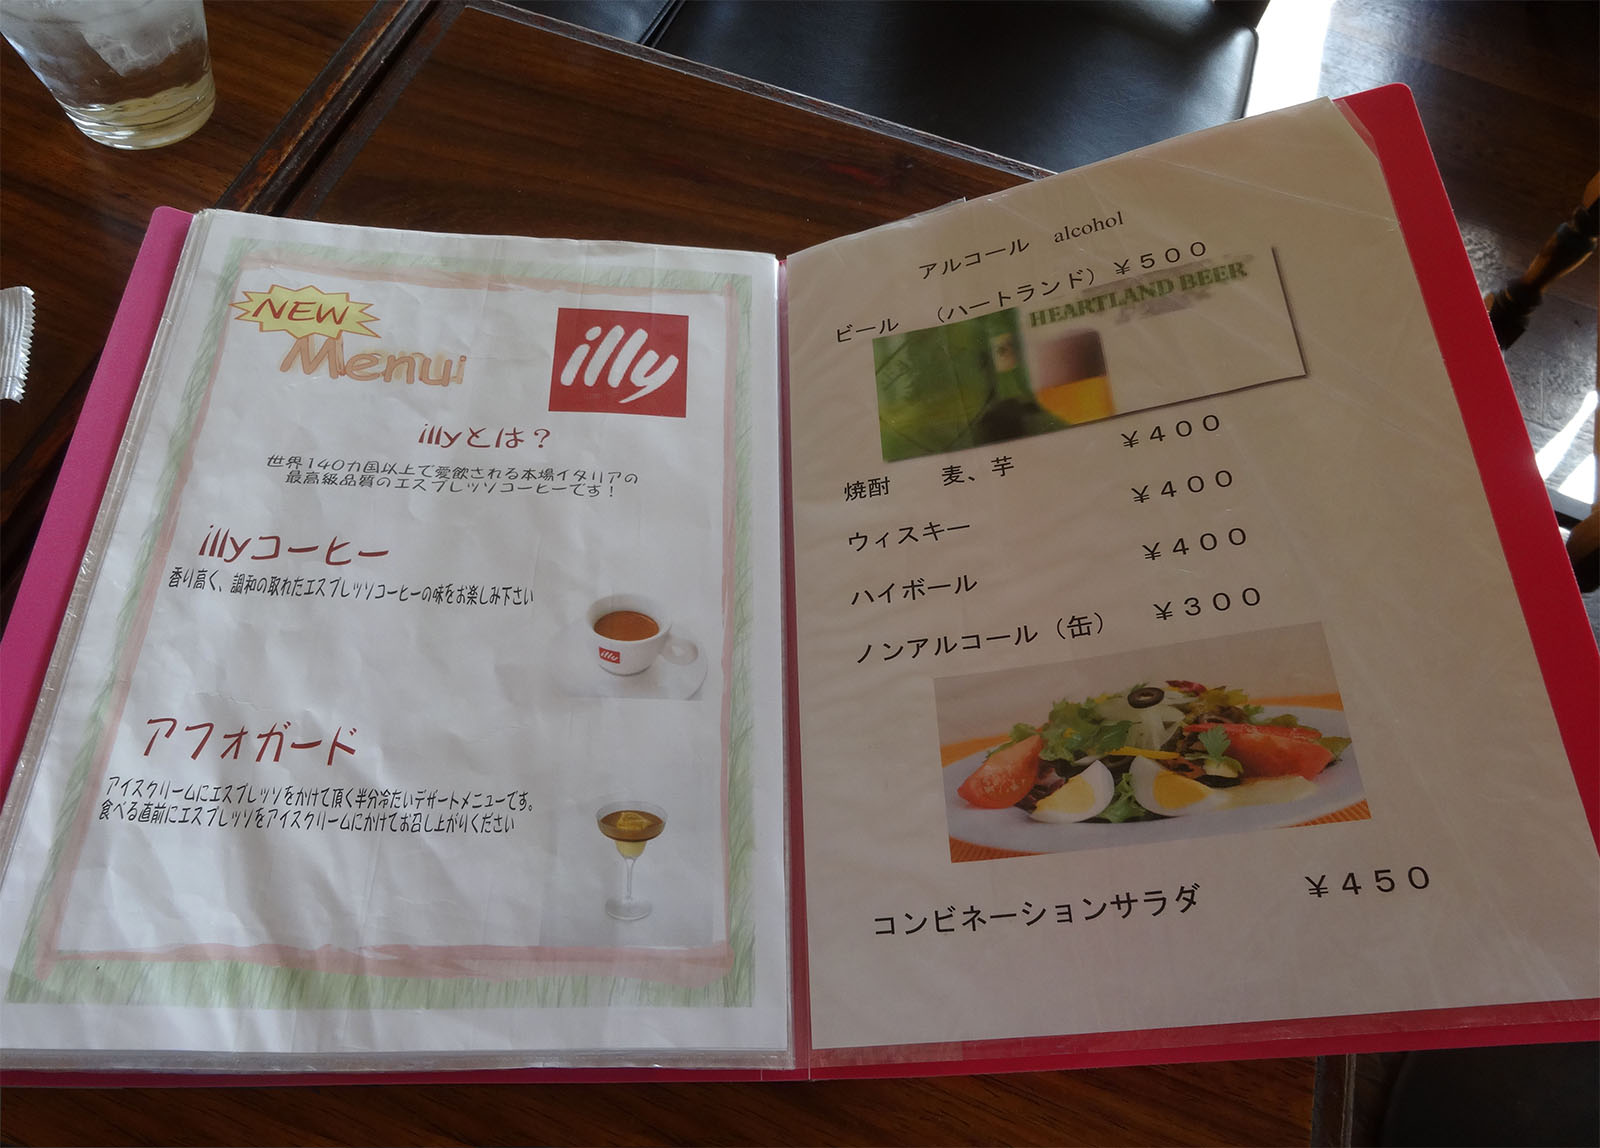 NEW
Menu
illy
illyとは？
世界140カ国以上で愛飲される本場イタリアの
最高級品質のエスプレッソコーヒーです！
illyコーヒー
香り高く、調和の取れたエスプレッソコーヒーの味をお楽しみ下さい
illy
アフォガード
アイスクリームにエスプレッソをかけて頂く半分冷たいデザートメニューです。
食べる直前にエスプレッソをアイスクリームにかけてお召し上がりください
アルコール alcohol
ビール （ハートランド）￥５００
HEARTLAND BEER
焼酎 麦、芋 ￥４００
ウィスキー ￥４００
ハイボール ￥４００
ノンアルコール（缶） ￥３００
コンビネーションサラダ ￥４５０